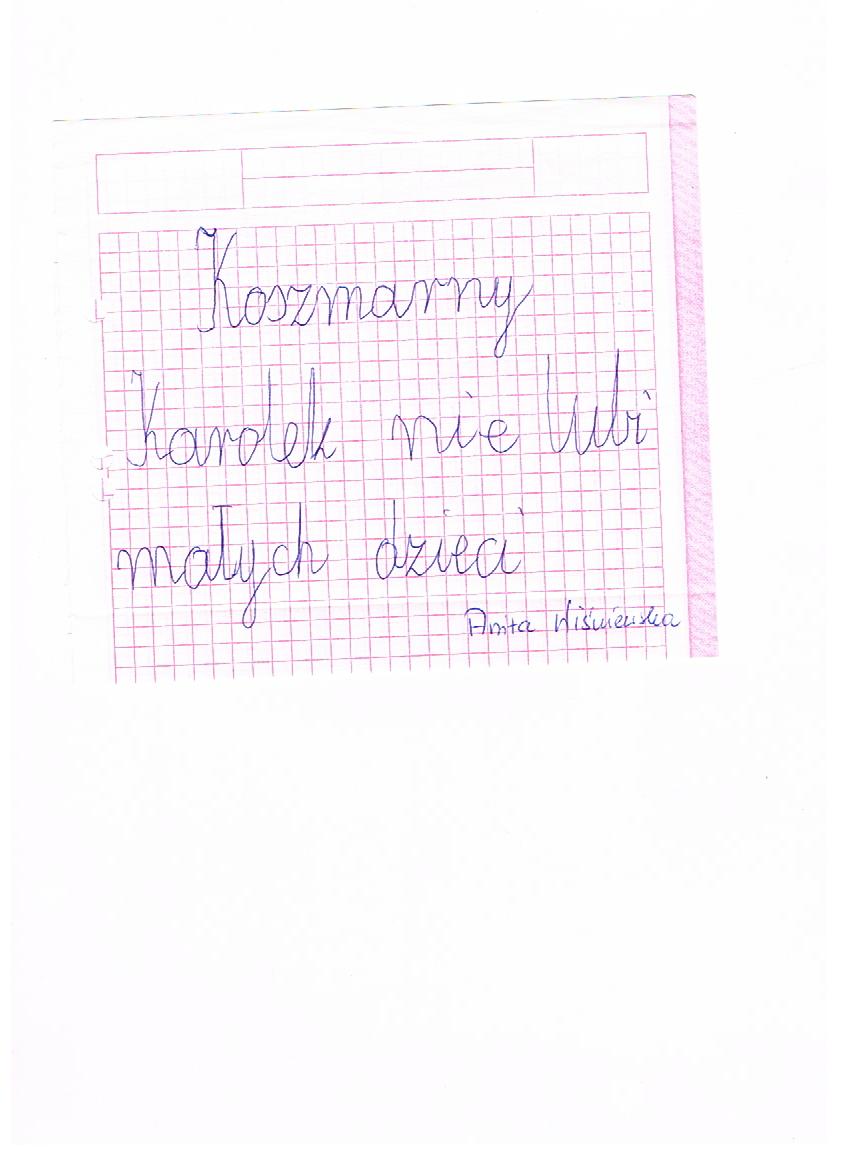 Koszmarny
Karolek nie lubi
małych dzieci
Anita Wiśniewska